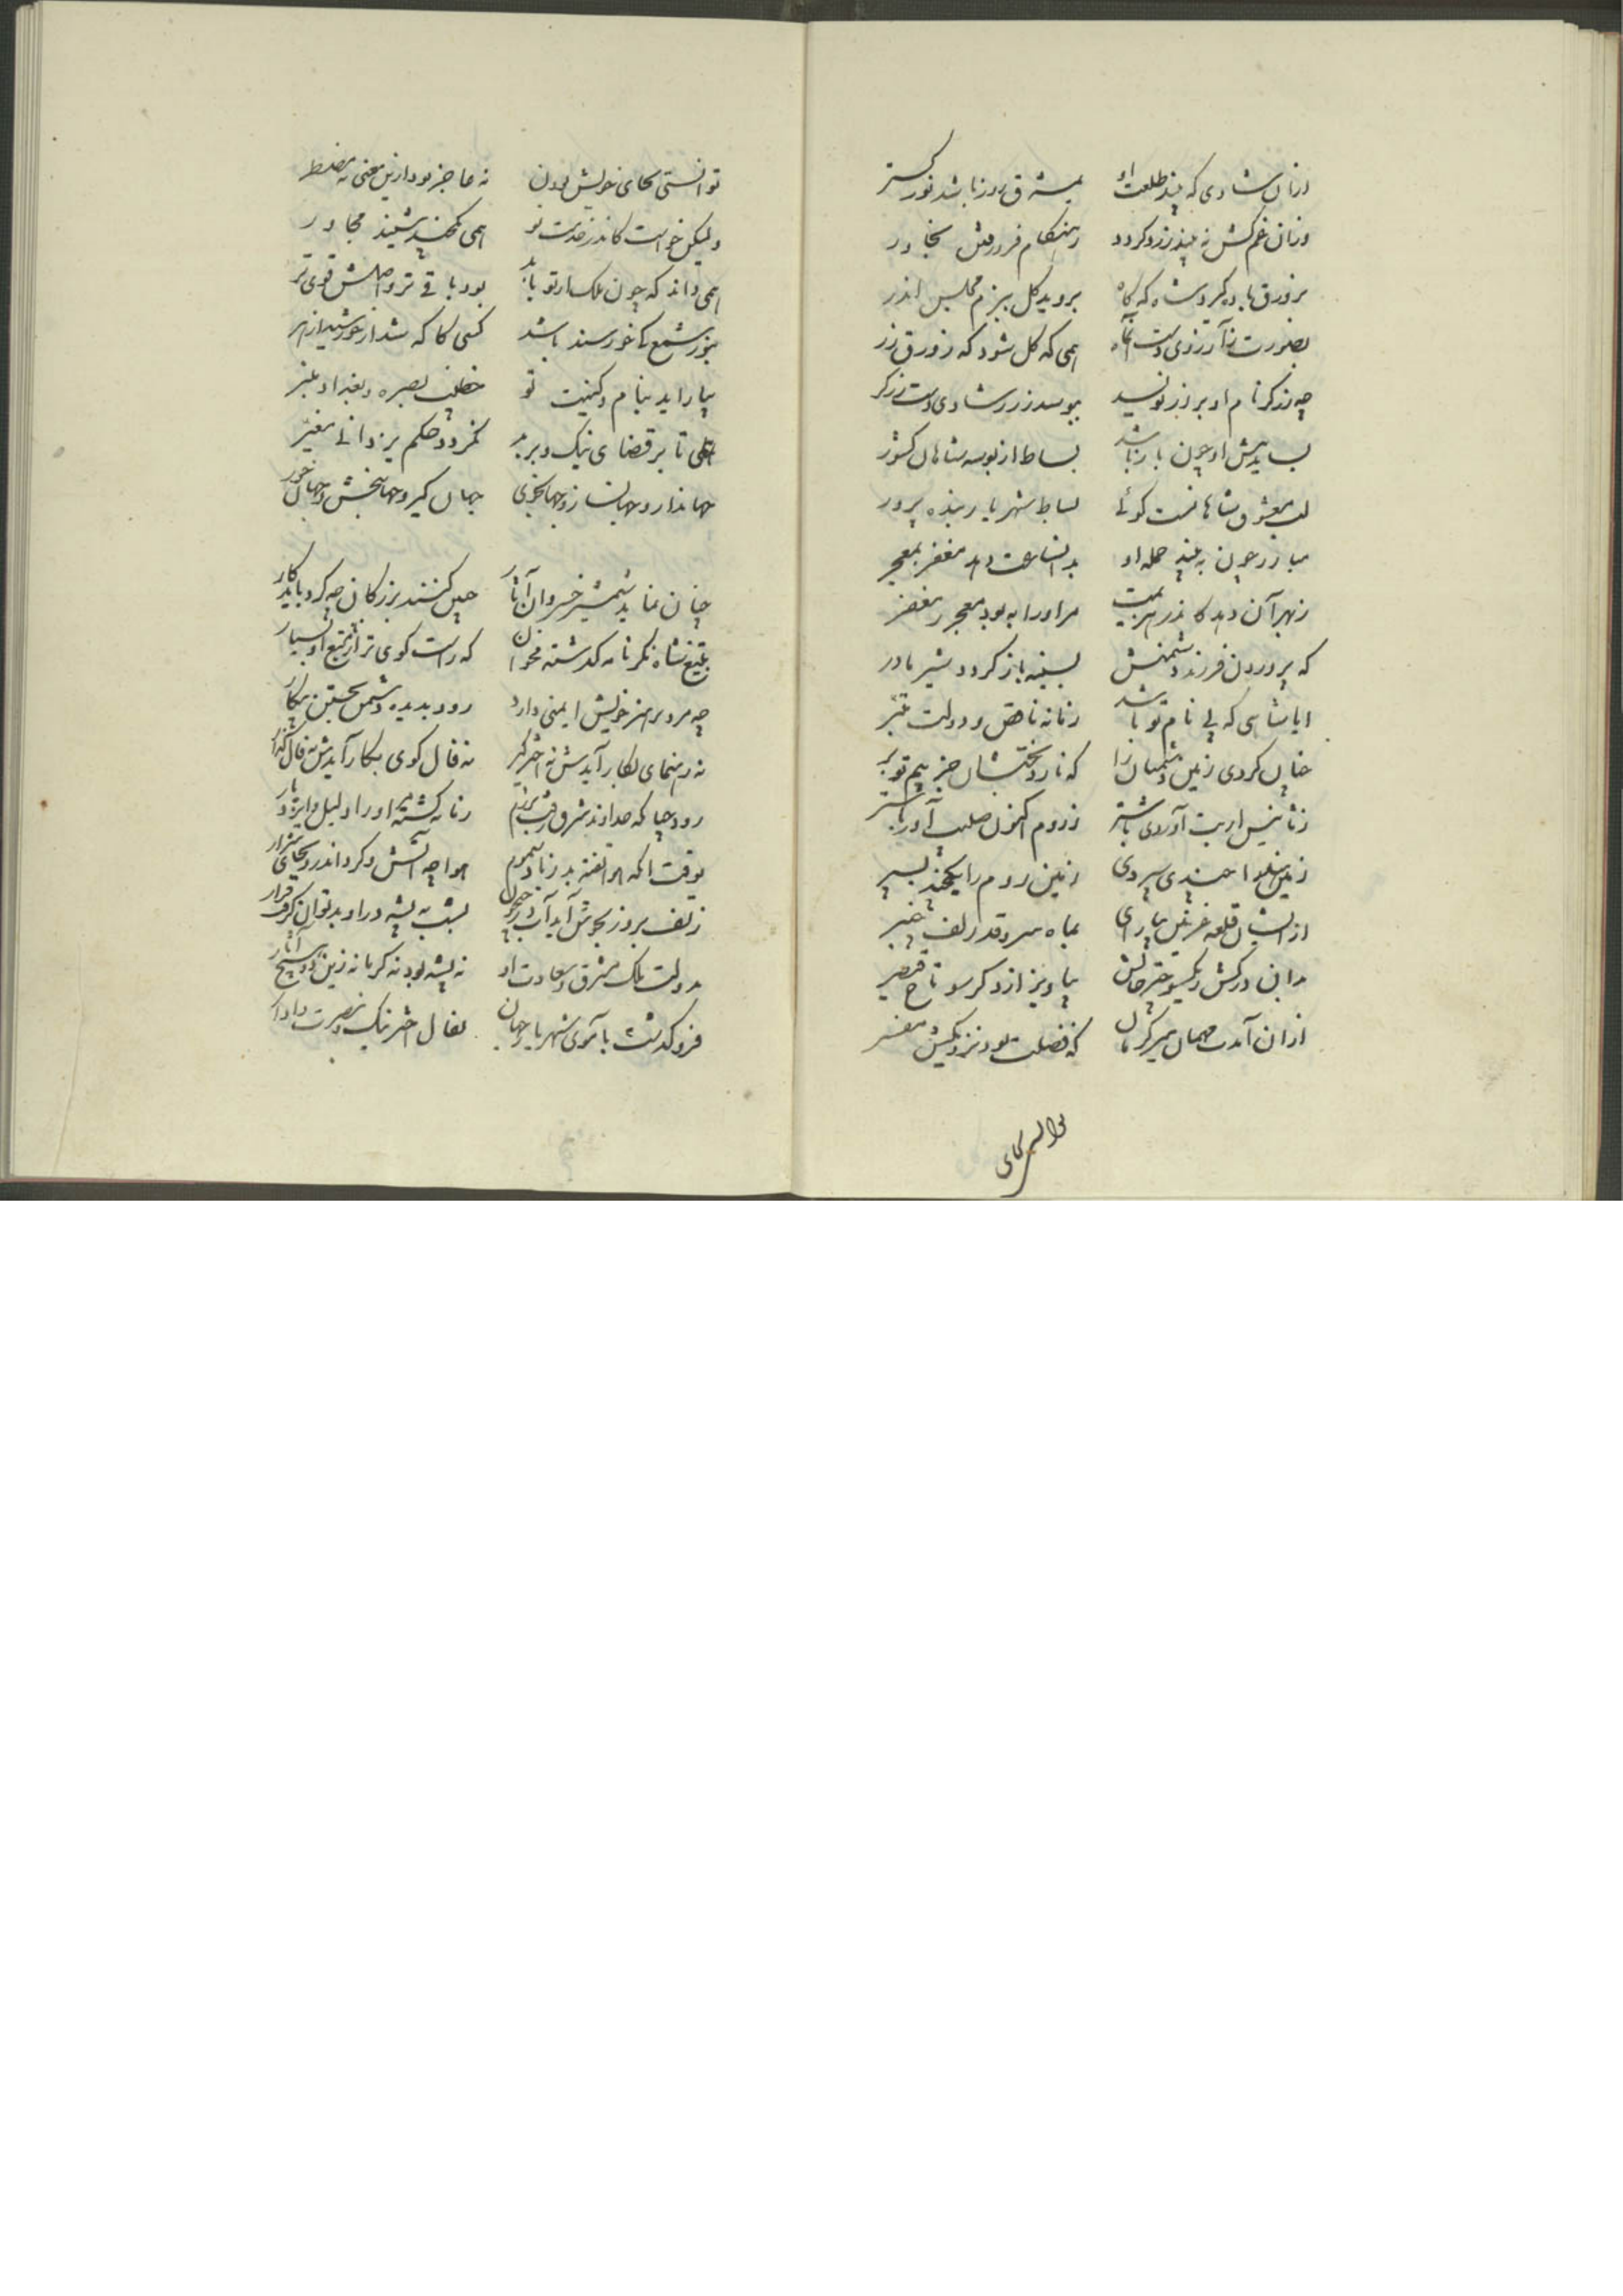 وزان شادی که بیند طلعت او بمشرق روز باشد نور گستر
وزان غم کش نه بیند زرد گردد بهنگام فرو رفتن بخاور
بزورق باده گیرد شاه که گاه بروید گل ببزم مجلس اندر
بصورت ز آرزوی دست آنماه همی که گل شود که زورق زر
چه زرگر نام او بر زر نویسد ببوسد زر ز شادی دست زرگر
بساید پیش او چون بار باشد بساط از بوسه شاهان کشور
لب معشوق شاهانست گوئی بساط شهریار بنده پرور
مبارز چون به بیند حمله او بدانساعت دهد مغفر بمعجر
زبهر آن دهد کاندر هزیمت مر او را به بود معجر ز مغفر
که پروردن فرزند دشمنش بسینه باز گردد شیر مادر
ایا شاهی که بی نام تو باشد زمانه ناقص و دولت مبتر
چنان کردی زمین دشمنان را که نارد تختشان جز بیم تو بر
ز تانیسر ار بت آوردی باشتر ز روم اکنون صلیب آور باستر
زمین هندوا چندی سپردی زمین روم را یکچند بسپر
از ایشان قلعه غزنین بیارای بماه سرو قد زلف چنبر
مرانی درکش و یکسو خرامش بیاویز از دگر سو تاج قیصر
از ان آمدت مهمان میر کرمان که فضلت بود نزدیکش مفسر
توانستی بجای خویش بودن نه عاجز بود ازین معنی نه مضطر
ولیکن خواست کاندر خدمت تو همی یکچند بنشیند مجاور
همی داند که چون ملک از تو یابد بود باقی تر و اصلش قوی تر
بنور شمع کی خورسند باشد کسی کاگه شد از خورشید ازهر
بیاراید بنام و کنیت تو خطیب بصره و بغداد منبر
الی تا بر قضای نیک و بر بد نگردد حکم یزدانی مغیر
جهاندار و جهانساز و جهانجوی جهان گیر و جهانبخش و جهان خور
چنان نماید شمشیر خسروان آثار چنین کنند بزرگان چه کرد باید کار
بتیغ شاه نگر نامه گذشته مخوان که راست گوی تر از تیغ او بسیار
چه مرد بر هنر خویش ایمنی دارد رود بدیده دشمن بجستن پیکار
نه رهنمای بکار آیدش نه اختر گیر نه فال گوی بکار آیدش نه فال گذار
رود چنا که خداوند شرق رفت برزم زمانه گشته مر او را دلیل و ایزد یار
بوقت انکه هوا تفته بد زباد سموم هوا چه آتش و گرد اندرو بجای شرار
ز تف بروز بجوش آید آب در جیحون بشب ز پشه در او بد توان گرفت قرار
نه پشه بود نه گرما نه زین دو رنج آثار بدولت ملک مشرق و سعادت او
فرو گذشت بآموی شهریار جهان بفال اختر نیک و بنصرت دادار